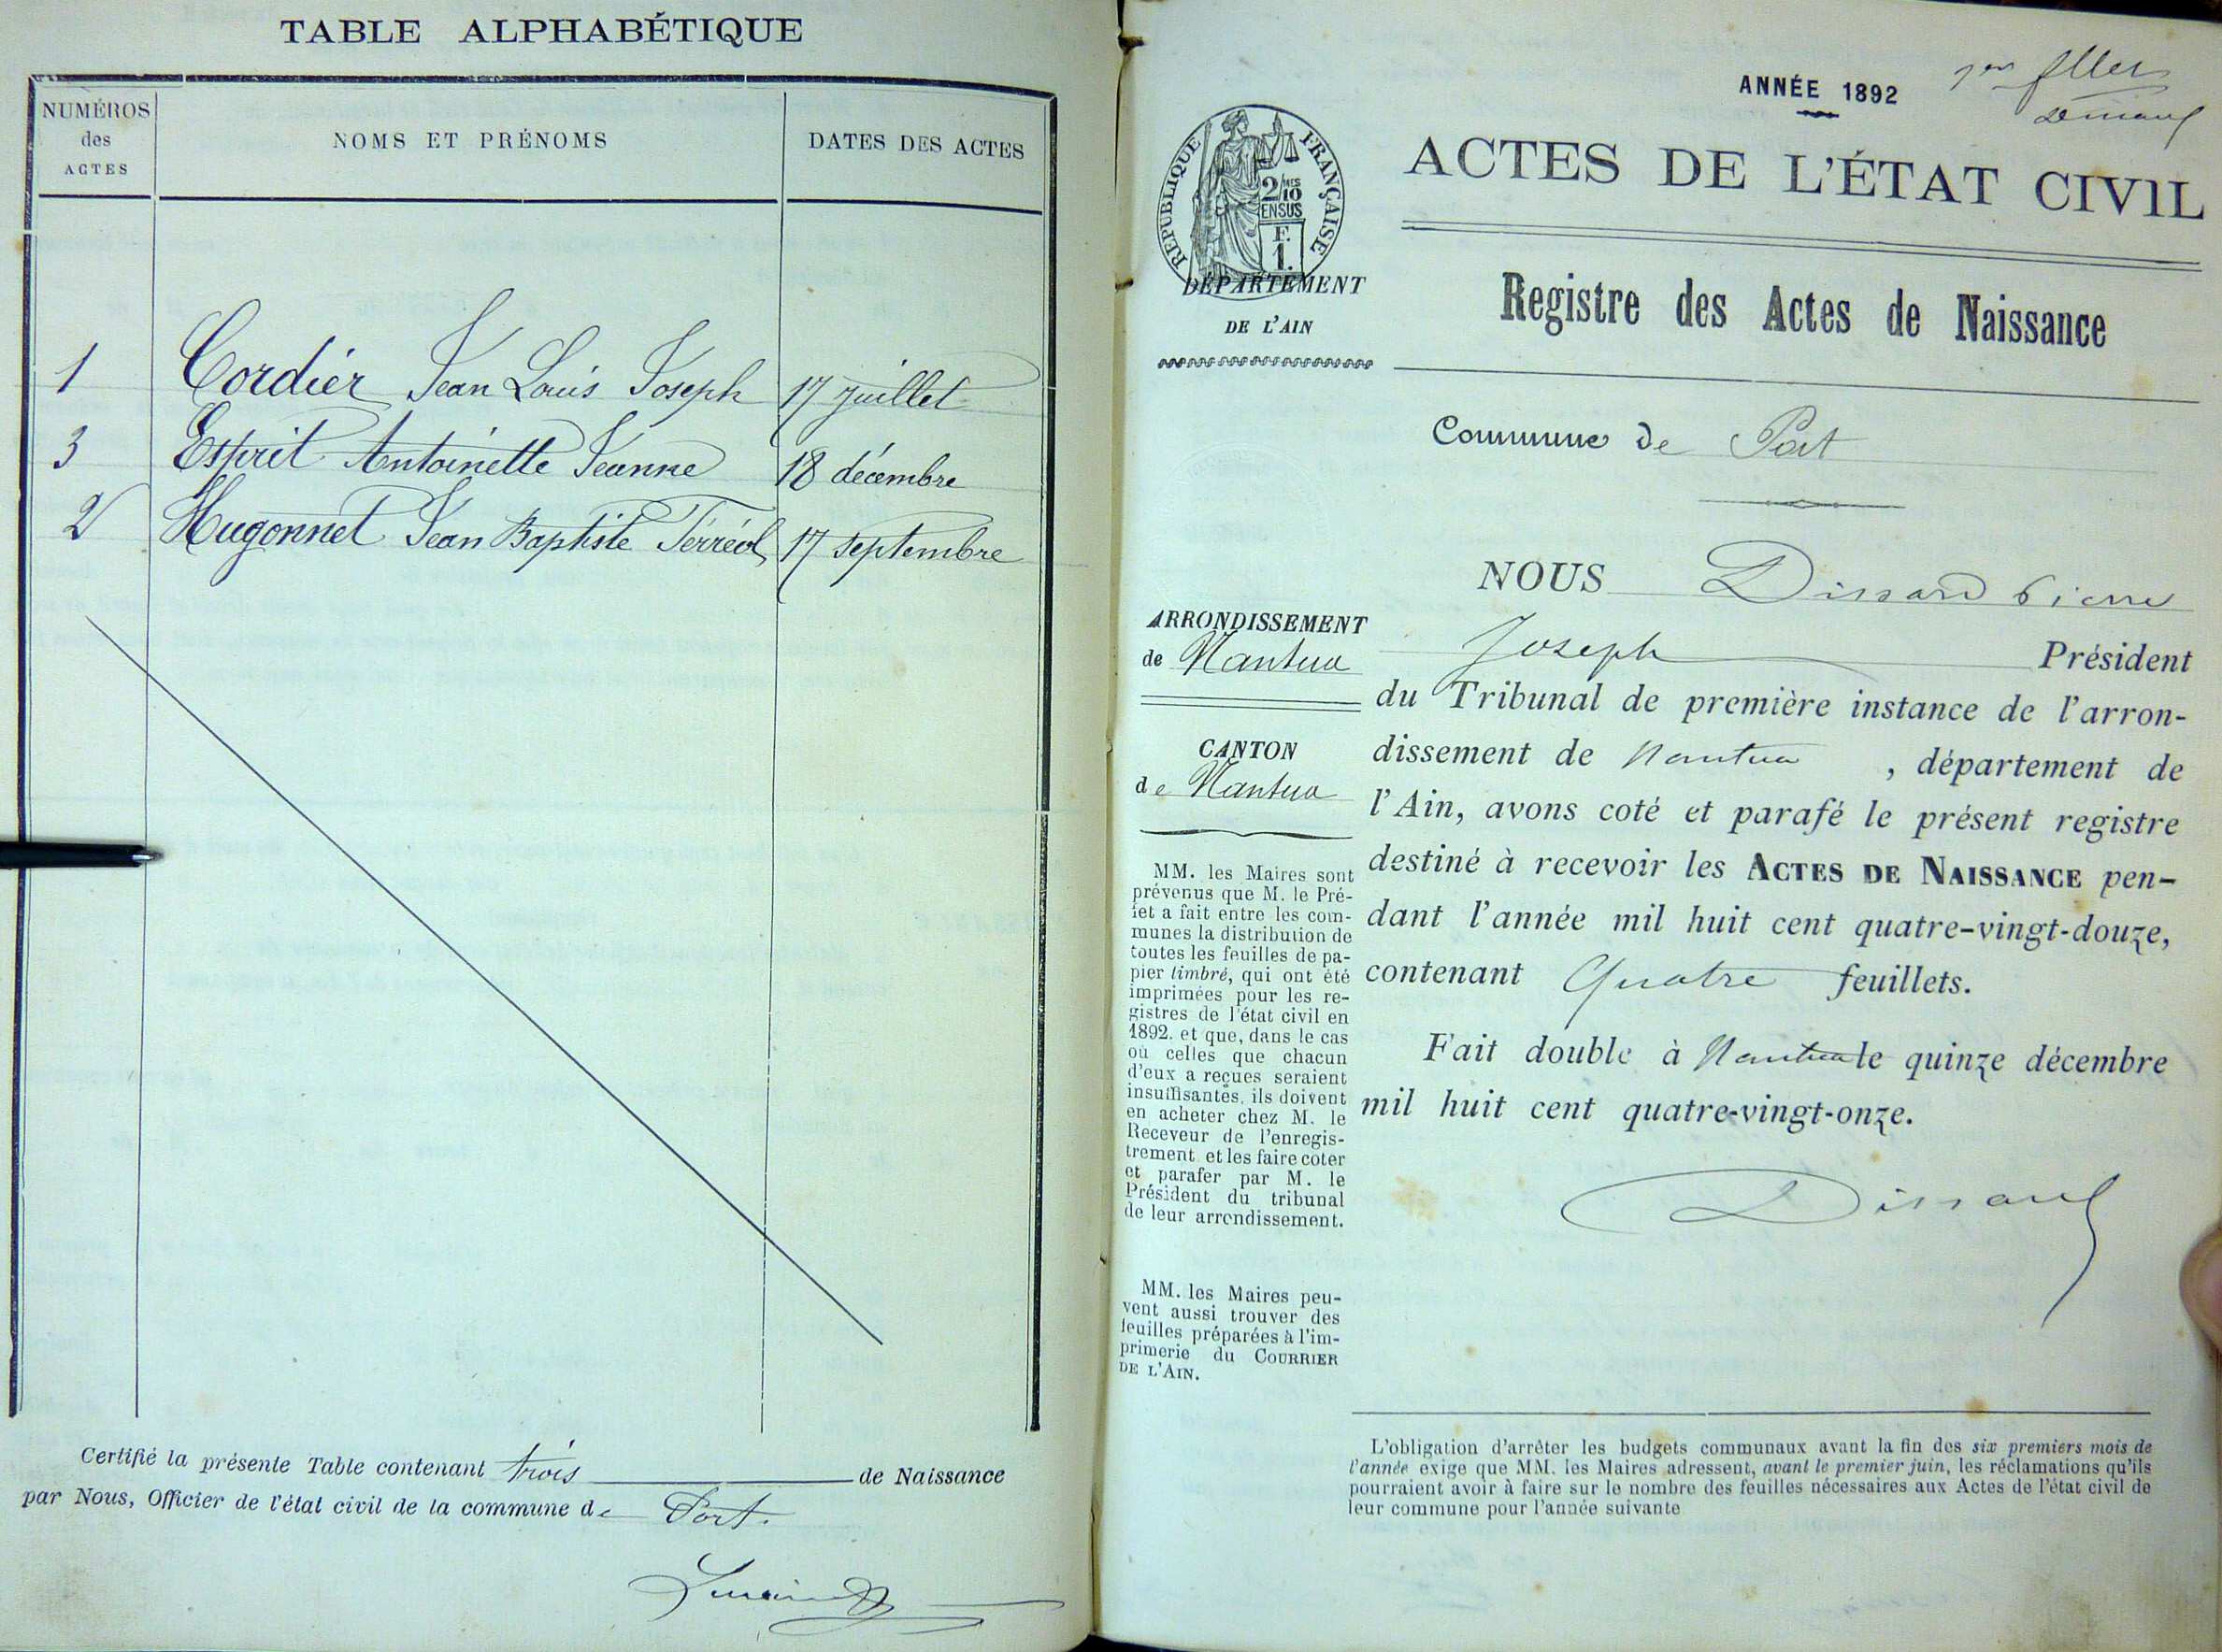 TABLE ALPHABÉTIQUE
NUMÉROS
des
ACTES
NOMS ET PRÉNOMS
DATES DES ACTES
1 Cordier Jean Louis Joseph 17 juillet
3 Esprit Antoinette Jeanne 18 décembre
2 Hugonnet Jean Baptiste Férréol 17 septembre
Certifié la présente Table contenant trois de Naissance
par Nous, Officier de l'état civil de la commune de Port.
ANNÉE 1892
1er
RÉPUBLIQUE FRANÇAISE
2/10 MES
EN SUS
F.
1.
ACTES DE L'ÉTAT CIVIL
DÉPARTEMENT
DE L'AIN
Registre des Actes de Naissance
Commune de Port
ARRONDISSEMENT
de Nantua
CANTON
de Nantua
MM. les Maires sont
prévenus que M. le Pré-
fet a fait entre les com-
munes la distribution de
toutes les feuilles de pa-
pier timbré, qui ont été
imprimées pour les re-
gistres de l'état civil en
1892. et que, dans le cas
où celles que chacun
d'eux a reçues seraient
insuffisantes, ils doivent
en acheter chez M. le
Receveur de l'enregis-
trement et les faire coter
et parafer par M. le
Président du tribunal
de leur arrondissement.
MM. les Maires peu-
vent aussi trouver des
feuilles préparées à l'im-
primerie du COURRIER
DE L'AIN.
NOUS Dissard Pierre
Joseph Président
du Tribunal de première instance de l'arron-
dissement de Nantua , département de
l'Ain, avons coté et parafé le présent registre
destiné à recevoir les ACTES DE NAISSANCE pen-
dant l'année mil huit cent quatre-vingt-douze,
contenant Quatre feuillets.
Fait double à Nantua le quinze décembre
mil huit cent quatre-vingt-onze.
Dissard
L'obligation d'arrêter les budgets communaux avant la fin des six premiers mois de
l'année exige que MM. les Maires adressent, avant le premier juin, les réclamations qu'ils
pourraient avoir à faire sur le nombre des feuilles nécessaires aux Actes de l'état civil de
leur commune pour l'année suivante